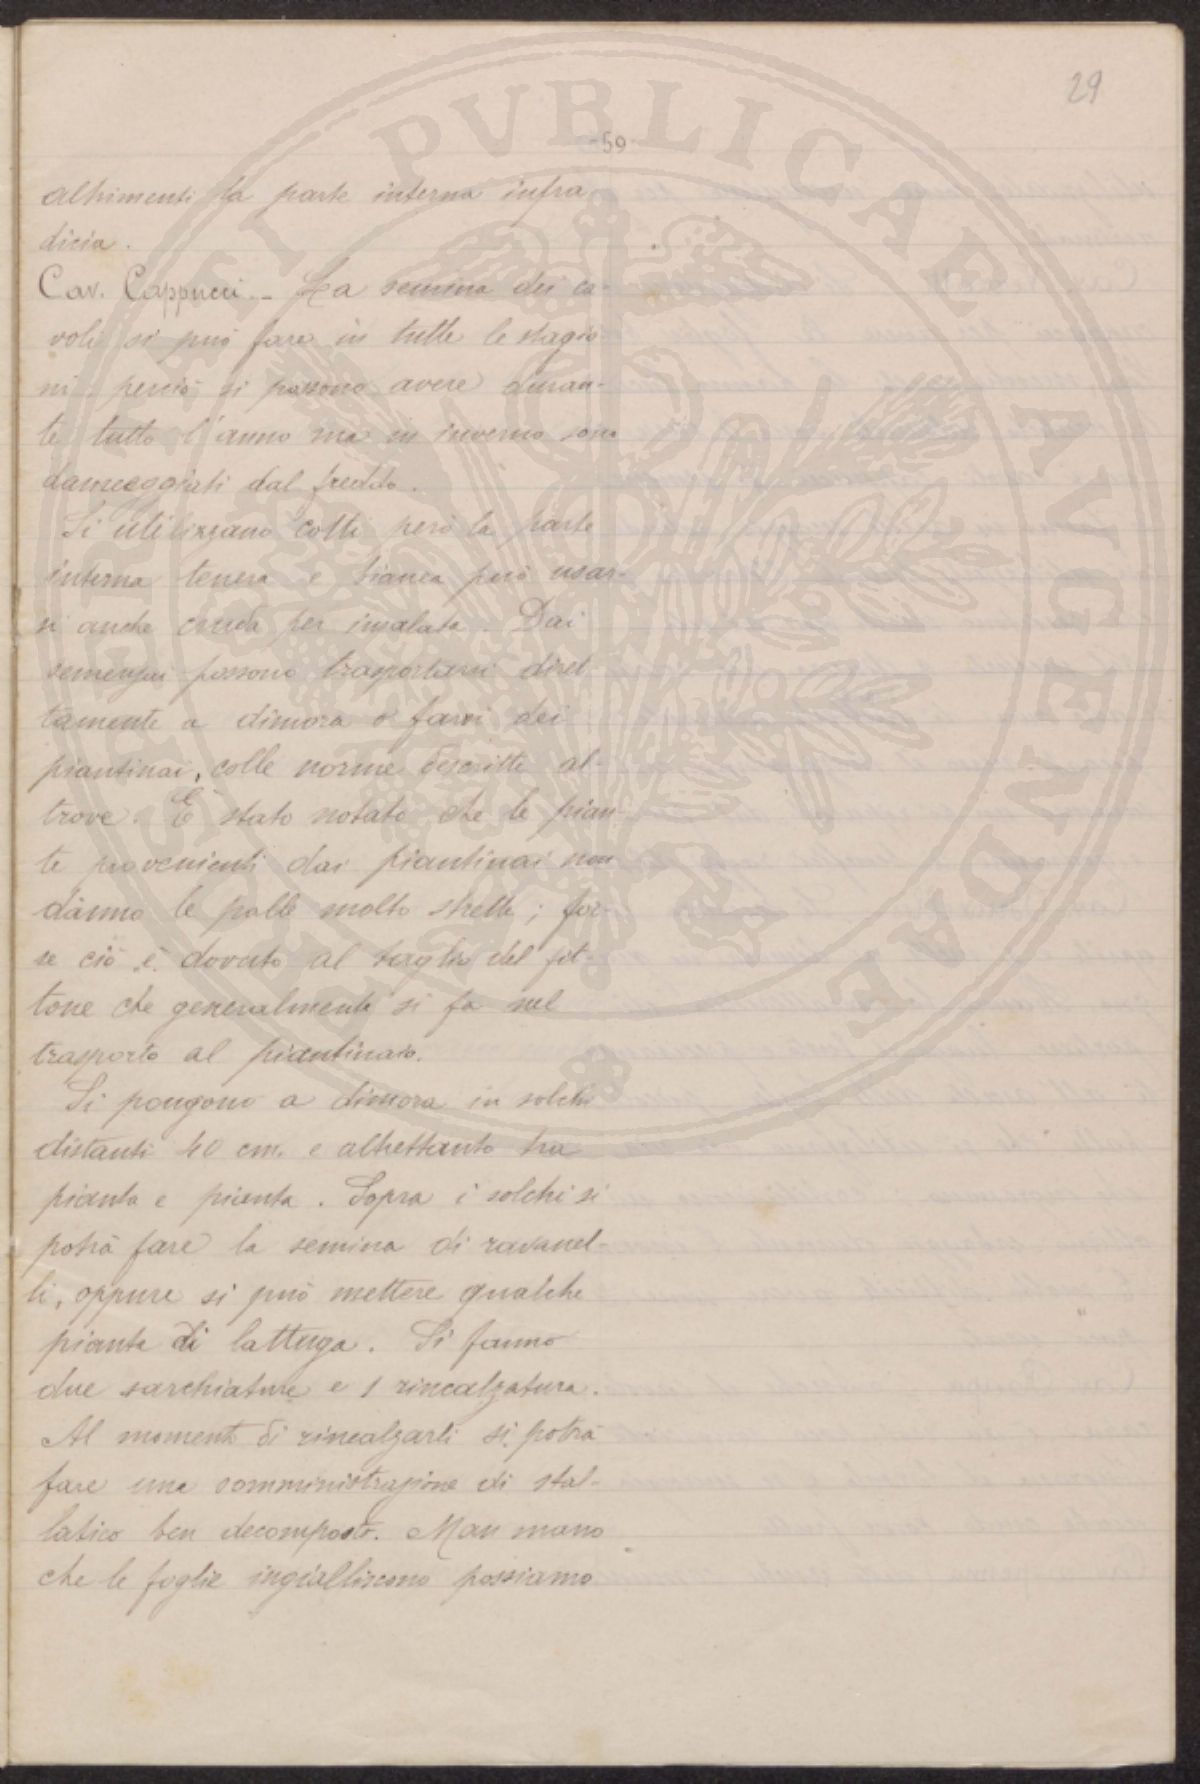 29
- 59 -
altrimenti la parte interna infra
dicia.
Cav. Cappucci. - La semina dei ca-
voli si può fare in tutte le stagio-
ni perciò si possono avere duran-
te tutto l'anno ma in inverno sono
danneggiati dal freddo.
Si utilizzano cotti però la parte
interna tenera e bianca può usar-
si anche cruda per insalata. Dai
semenzai possono trasportarsi diret
tamente a dimora o farvi dei
piantinai, colle norme descritte al-
trove. È stato notato che le pian-
te provenienti dai piantinai non
dànno le palle molto strette; for-
se ciò è dovuto al taglio del fit-
tone che generalmente si fa nel
trasporto al piantinaio.
Si pongono a dimora in solchi
distanti 40 cm. e altrettanto tra
pianta e pianta. Sopra i solchi si
potrà fare la semina di ravanel-
li, oppure si può mettere qualche
pianta di lattuga. Si fanno
due sarchiature e 1 rincalzatura.
Al momento di rincalzarli si potrà
fare una somministrazione di stal-
latico ben decomposto. Man mano
che le foglie ingialliscono possiamo
PVBLICAE AVGENDAE